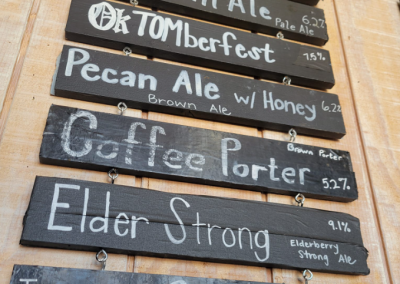 Ale
Pale Ale
6.2%
OkTOMberfest
7.5%
Pecan Ale w/ Honey
Brown Ale
6.2%
Coffee Porter
Brown Porter
5.2%
Elder Strong
9.1%
Elderberry
Strong Ale